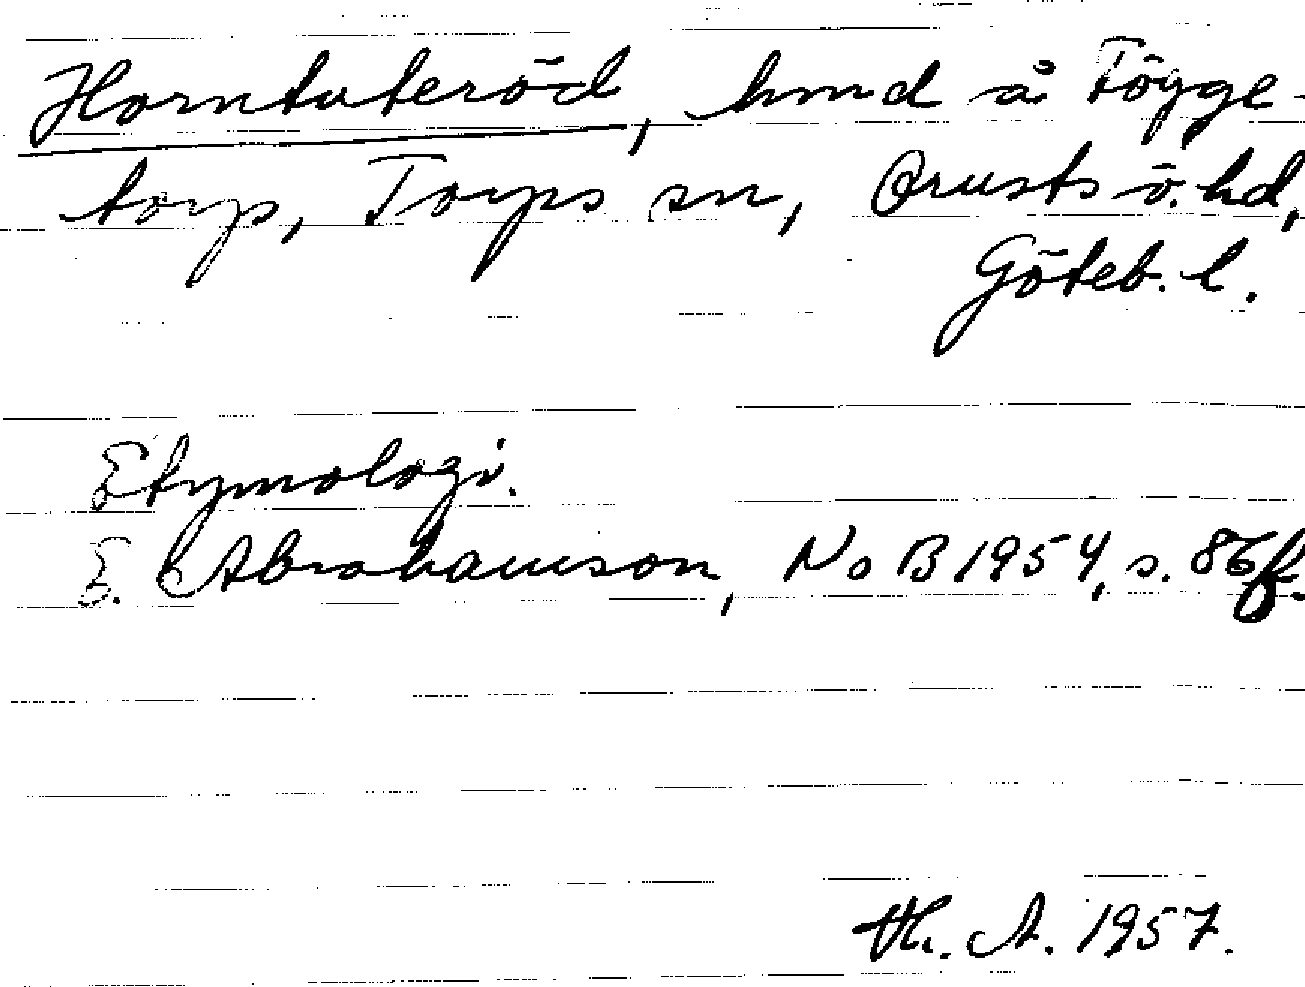 Horntuteröd, hmd å Tögge-
torp, Torps sn, Orusts ö. hd,
Göteb. l.
Etymologi.
E. Abrahamson, NoB 1954, s. 86 f.
Th. A. 1957.